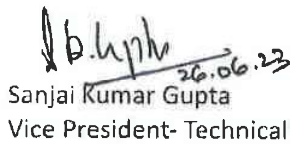 26.06.23
Sanjai Kumar Gupta
Vice President- Technical